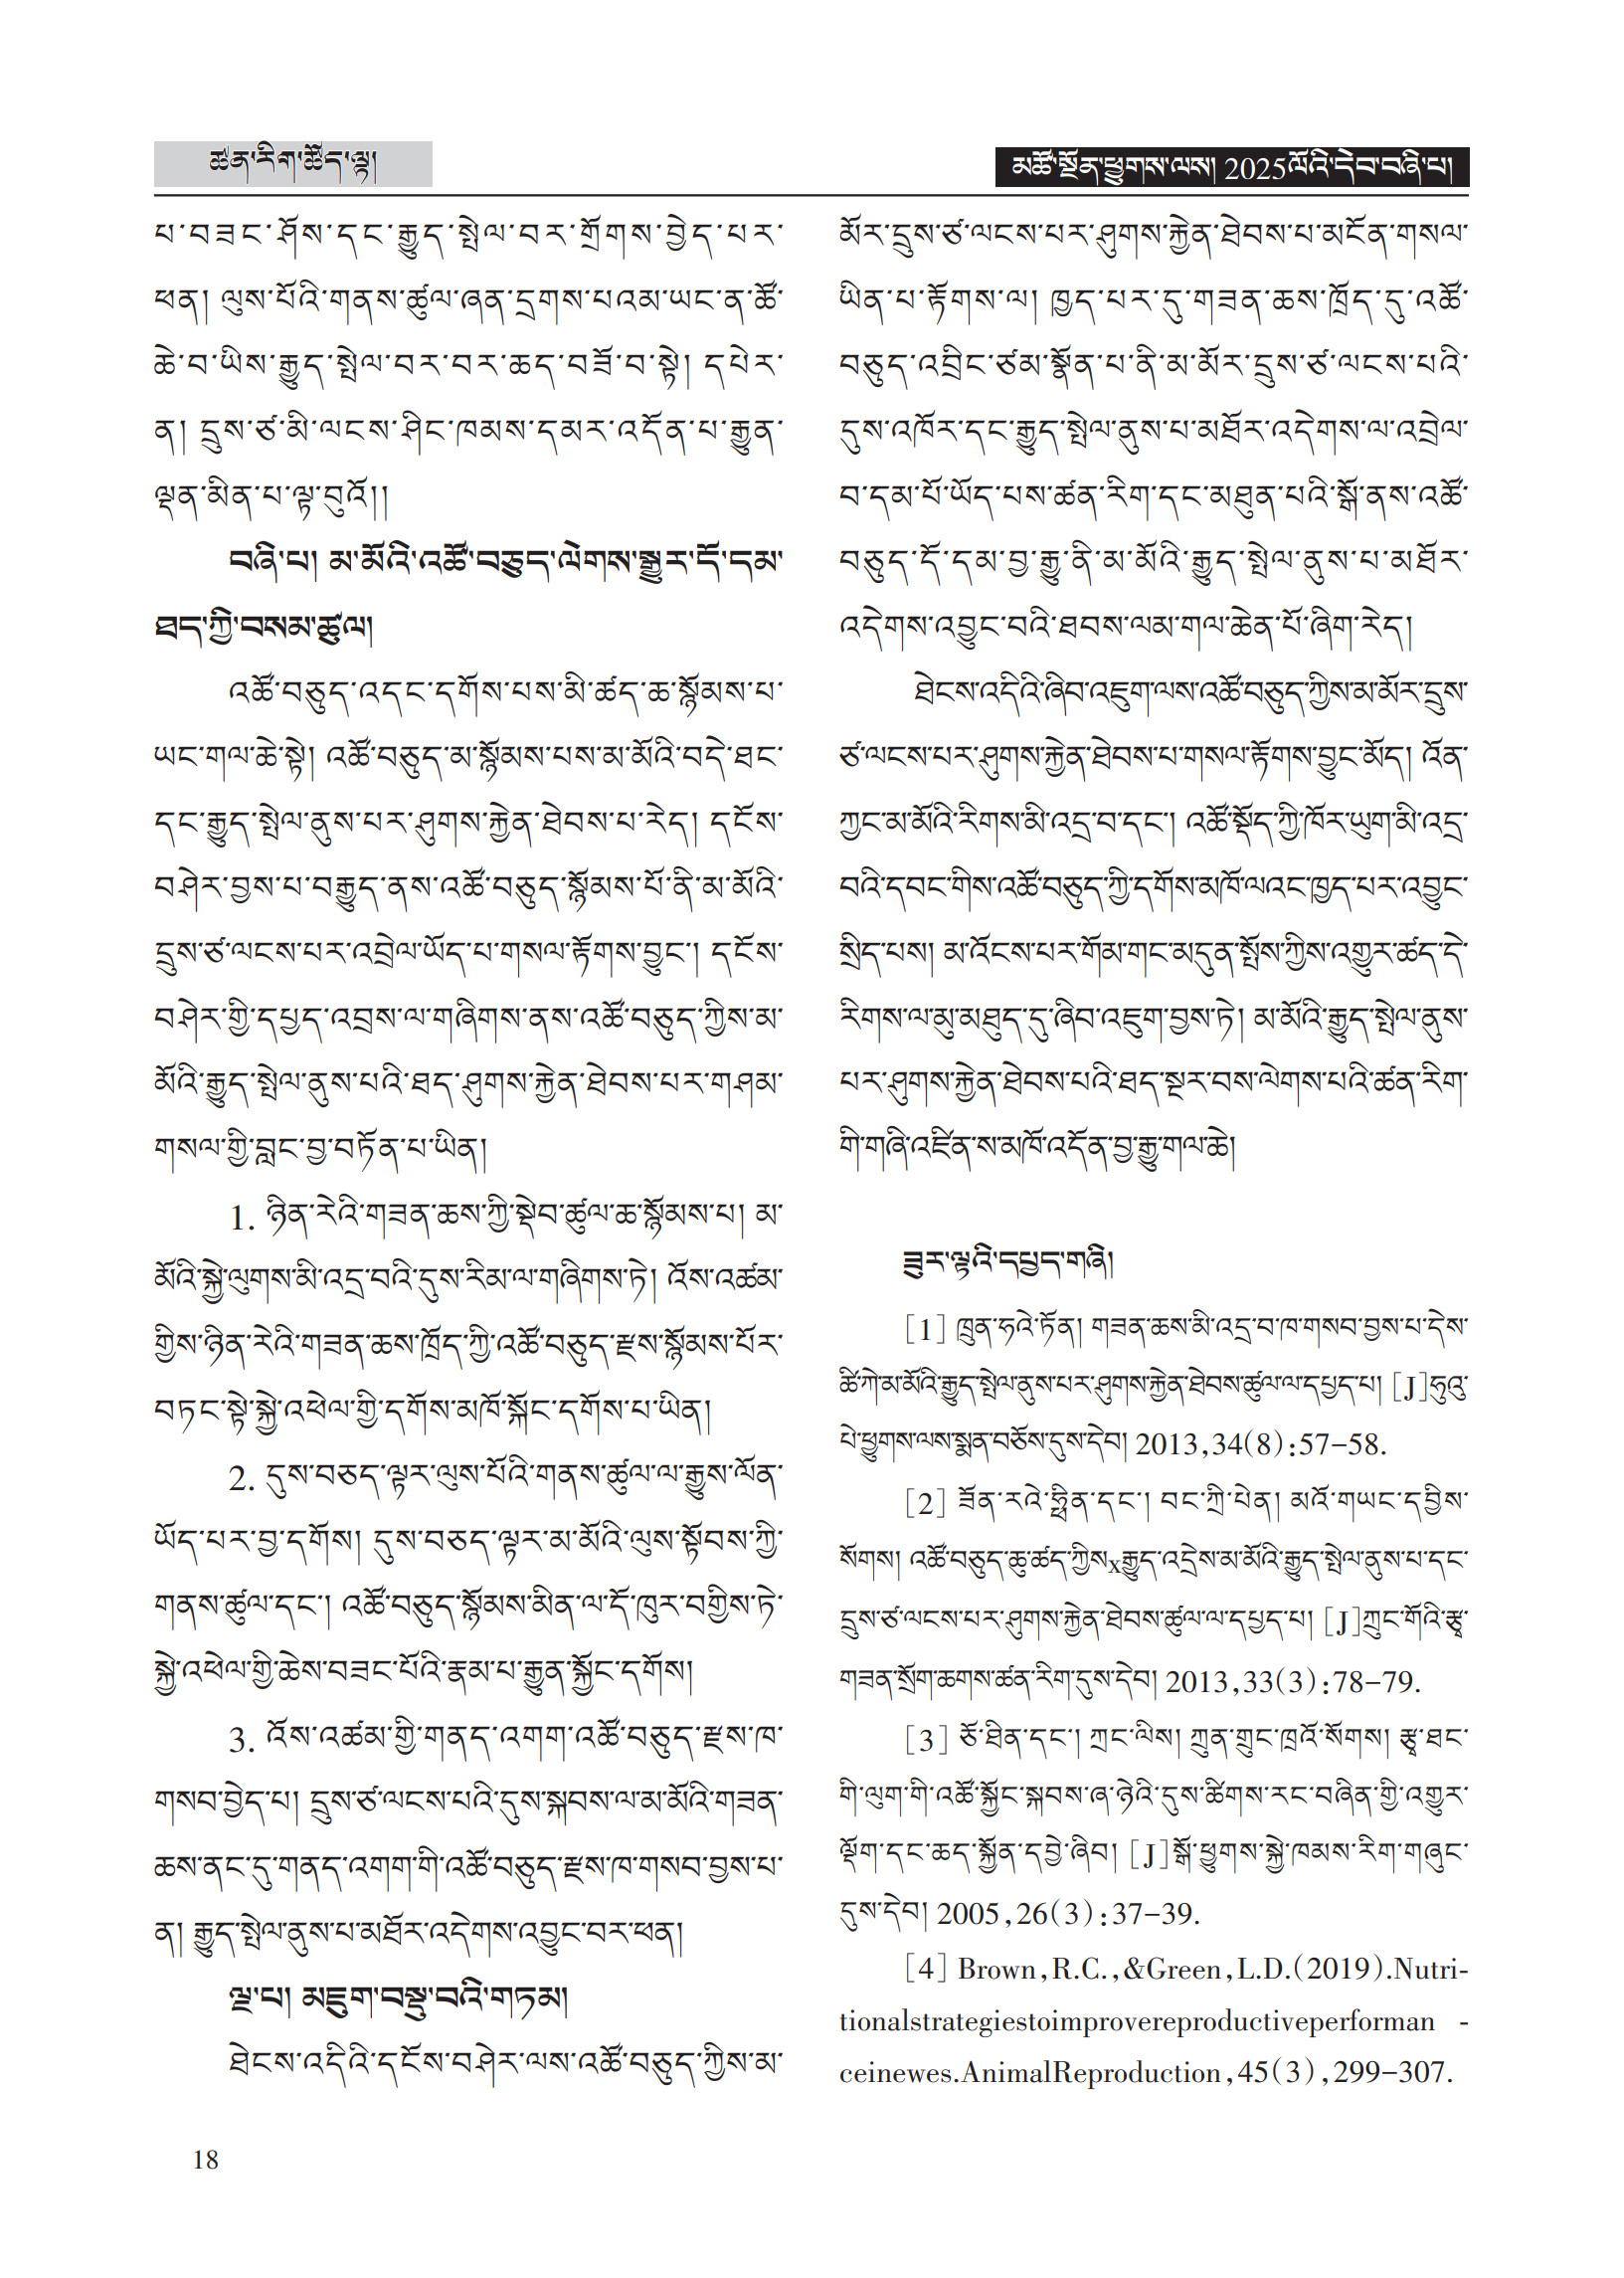 ཚན་རིག་ཚོད་ལྟ།
མཚོ་སྔོན་ཕྱུགས་ལས། 2025ལོའི་དེབ་བཞི་པ།
པ་བཟང་ཤོས་དང་རྒྱུད་སྤེལ་བར་གྲོགས་བྱེད་པར་
ཕན། ལུས་པོའི་གནས་ཚུལ་ཞན་དྲགས་པའམ་ཡང་ན་ཚོ་
ཆེ་བ་ཡིས་རྒྱུད་སྤེལ་བར་བར་ཆད་བཟོ་བ་སྟེ། དཔེར་
ན། དྲུས་ཙ་མི་ལངས་ཤིང་ཁམས་དམར་འདོན་པ་རྒྱུན་
ལྡན་མིན་པ་ལྟ་བུའོ།།
བཞི་པ། མ་མོའི་འཚོ་བཅུད་ལེགས་སྒྱུར་དོ་དམ་
ཐད་ཀྱི་བསམ་ཚུལ།
འཚོ་བཅུད་འདང་དགོས་པས་མི་ཚད་ཆ་སྙོམས་པ་
ཡང་གལ་ཆེ་སྟེ། འཚོ་བཅུད་མ་སྙོམས་པས་མ་མོའི་བདེ་ཐང་
དང་རྒྱུད་སྤེལ་ནུས་པར་ཤུགས་རྐྱེན་ཐེབས་པ་རེད། དངོས་
བཤེར་བྱས་པ་བརྒྱུད་ནས་འཚོ་བཅུད་སྙོམས་པོ་ནི་མ་མོའི་
དྲུས་ཙ་ལངས་པར་འབྲེལ་ཡོད་པ་གསལ་རྟོགས་བྱུང་། དངོས་
བཤེར་གྱི་དཔྱད་འབྲས་ལ་གཞིགས་ནས་འཚོ་བཅུད་ཀྱིས་མ་
མོའི་རྒྱུད་སྤེལ་ནུས་པའི་ཐད་ཤུགས་རྐྱེན་ཐེབས་པར་གཤམ་
གསལ་གྱི་བླང་བྱ་བཏོན་པ་ཡིན།
1. ཉིན་རེའི་གཟན་ཆས་ཀྱི་སྡེབ་ཚུལ་ཆ་སྙོམས་པ། མ་
མོའི་སྐྱེ་ལུགས་མི་འདྲ་བའི་དུས་རིམ་ལ་གཞིགས་ཏེ། འོས་འཚམ་
གྱིས་ཉིན་རེའི་གཟན་ཆས་ཁྲོད་ཀྱི་འཚོ་བཅུད་རྫས་སྙོམས་པོར་
བཏང་སྟེ་སྐྱེ་འཕེལ་གྱི་དགོས་མཁོ་སྐོང་དགོས་པ་ཡིན།
2. དུས་བཅད་ལྟར་ལུས་པོའི་གནས་ཚུལ་ལ་རྒྱུས་ལོན་
ཡོད་པར་བྱ་དགོས། དུས་བཅད་ལྟར་མ་མོའི་ལུས་སྟོབས་ཀྱི་
གནས་ཚུལ་དང་། འཚོ་བཅུད་སྙོམས་མིན་ལ་དོ་ཁུར་བགྱིས་ཏེ་
སྐྱེ་འཕེལ་གྱི་ཆེས་བཟང་པོའི་རྣམ་པ་རྒྱུན་སྐྱོང་དགོས།
3. འོས་འཚམ་གྱི་གནད་འགག་འཚོ་བཅུད་རྫས་ཁ་
གསབ་བྱེད་པ། དྲུས་ཙ་ལངས་པའི་དུས་སྐབས་ལ་མ་མོའི་གཟན་
ཆས་ནང་དུ་གནད་འགག་གི་འཚོ་བཅུད་རྫས་ཁ་གསབ་བྱས་པ་
ན། རྒྱུད་སྤེལ་ནུས་པ་མཐོར་འདེགས་འབྱུང་བར་ཕན།
ལྔ་པ། མཇུག་བསྡུ་བའི་གཏམ།
ཐེངས་འདིའི་དངོས་བཤེར་ལས་འཚོ་བཅུད་ཀྱིས་མ་
མོར་དྲུས་ཙ་ལངས་པར་ཤུགས་རྐྱེན་ཐེབས་པ་མངོན་གསལ་
ཡིན་པ་རྟོགས་ལ། ཁྱད་པར་དུ་གཟན་ཆས་ཁྲོད་དུ་འཚོ་
བཅུད་འབྲིང་ཙམ་སྣོན་པ་ནི་མ་མོར་དྲུས་ཙ་ལངས་པའི་
དུས་འཁོར་དང་རྒྱུད་སྤེལ་ནུས་པ་མཐོར་འདེགས་ལ་འབྲེལ་
བ་དམ་པོ་ཡོད་པས་ཚན་རིག་དང་མཐུན་པའི་སྒོ་ནས་འཚོ་
བཅུད་དོ་དམ་བྱ་རྒྱུ་ནི་མ་མོའི་རྒྱུད་སྤེལ་ནུས་པ་མཐོར་
འདེགས་འབྱུང་བའི་ཐབས་ལམ་གལ་ཆེན་པོ་ཞིག་རེད།
ཐེངས་འདིའི་ཞིབ་འཇུག་ལས་འཚོ་བཅུད་ཀྱིས་མ་མོར་དྲུས་
ཙ་ལངས་པར་ཤུགས་རྐྱེན་ཐེབས་པ་གསལ་རྟོགས་བྱུང་མོད། འོན་
ཀྱང་མ་མོའི་རིགས་མི་འདྲ་བ་དང་། འཚོ་སྡོད་ཀྱི་ཁོར་ཡུག་མི་འདྲ་
བའི་དབང་གིས་འཚོ་བཅུད་ཀྱི་དགོས་མཁོ་ལའང་ཁྱད་པར་འབྱུང་
སྲིད་པས། མ་འོངས་པར་གོམ་གང་མདུན་སྤོས་ཀྱིས་འགྱུར་ཚད་དེ་
རིགས་ལ་མུ་མཐུད་དུ་ཞིབ་འཇུག་བྱས་ཏེ། མ་མོའི་རྒྱུད་སྤེལ་ནུས་
པར་ཤུགས་རྐྱེན་ཐེབས་པའི་ཐད་སྔར་བས་ལེགས་པའི་ཚན་རིག་
གི་གཞི་འཛིན་ས་མཁོ་འདོན་བྱ་རྒྱུ་གལ་ཆེ།
ཟུར་ལྟའི་དཔྱད་གཞི།
[1] ཁྲུན་ཧའེ་ཏོན། གཟན་ཆས་མི་འདྲ་བ་ཁ་གསབ་བྱས་པ་དེས་
ཚི་ཀེ་མ་མོའི་རྒྱུད་སྤེལ་ནུས་པར་ཤུགས་རྐྱེན་ཐེབས་ཚུལ་ལ་དཔྱད་པ། [J]ཧུའུ་
པེ་ཕྱུགས་ལས་སྨན་བཅོས་དུས་དེབ། 2013,34(8):57-58.
[2] ཟོན་རའེ་ཧྥིན་དང་། བང་ཀྲི་པེན། མའོ་གཡང་དབྱིས་
སོགས། འཚོ་བཅུད་ཆུ་ཚད་ཀྱིསxརྒྱུད་འདྲེས་མ་མོའི་རྒྱུད་སྤེལ་ནུས་པ་དང་
དྲུས་ཙ་ལངས་པར་ཤུགས་རྐྱེན་ཐེབས་ཚུལ་ལ་དཔྱད་པ། [J]ཀྲུང་གོའི་རྩྭ་
གཟན་སྲོག་ཆགས་ཚན་རིག་དུས་དེབ། 2013,33(3):78-79.
[3] ཅོ་ཐིན་དང་། ཀྲང་ལིས། ཀྲུན་གྲུང་ཁྲའོ་སོགས། རྩྭ་ཐང་
གི་ལུག་གི་འཚོ་སྐྱོང་སྐབས་ཞ་ཉེའི་དུས་ཚིགས་རང་བཞིན་གྱི་འགྱུར་
ལྡོག་དང་ཆད་སྐྱོན་དབྱེ་ཞིབ། [J]སྒོ་ཕྱུགས་སྐྱེ་ཁམས་རིག་གཞུང་
དུས་དེབ། 2005,26(3):37-39.
[4] Brown,R.C.,&Green,L.D.(2019).Nutri-
tionalstrategiestoimprovereproductiveperforman -
ceinewes.AnimalReproduction,45(3),299-307.
18